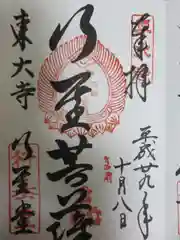 奉拝
平成廿九年
十月八日
行基菩薩
東大寺
行基堂